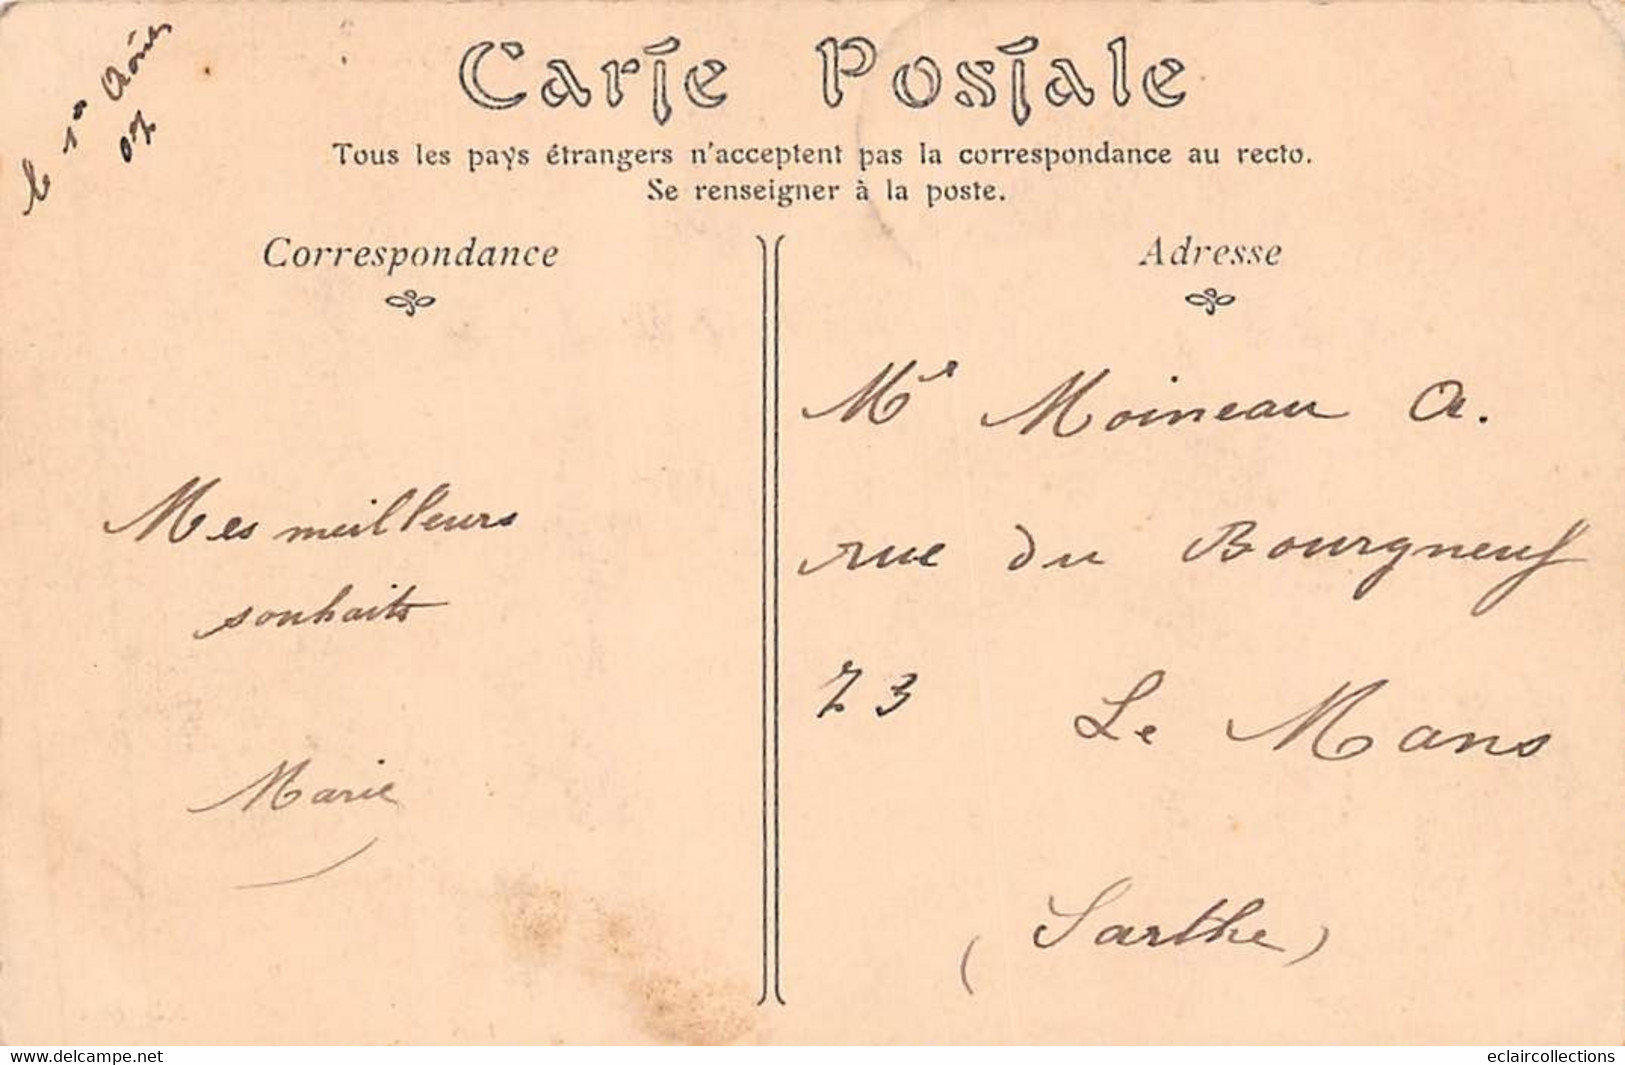 le 1er
07
Carte Postale
Tous les pays étrangers n'acceptent pas la correspondance au recto.
Se renseigner à la poste.
Correspondance
Adresse
Mes meilleurs
souhaits
Marie
Mr Moineau A.
rue du Bourgneuf
73 Le Mans
(Sarthe)
www.delcampe.net
eclaircollections